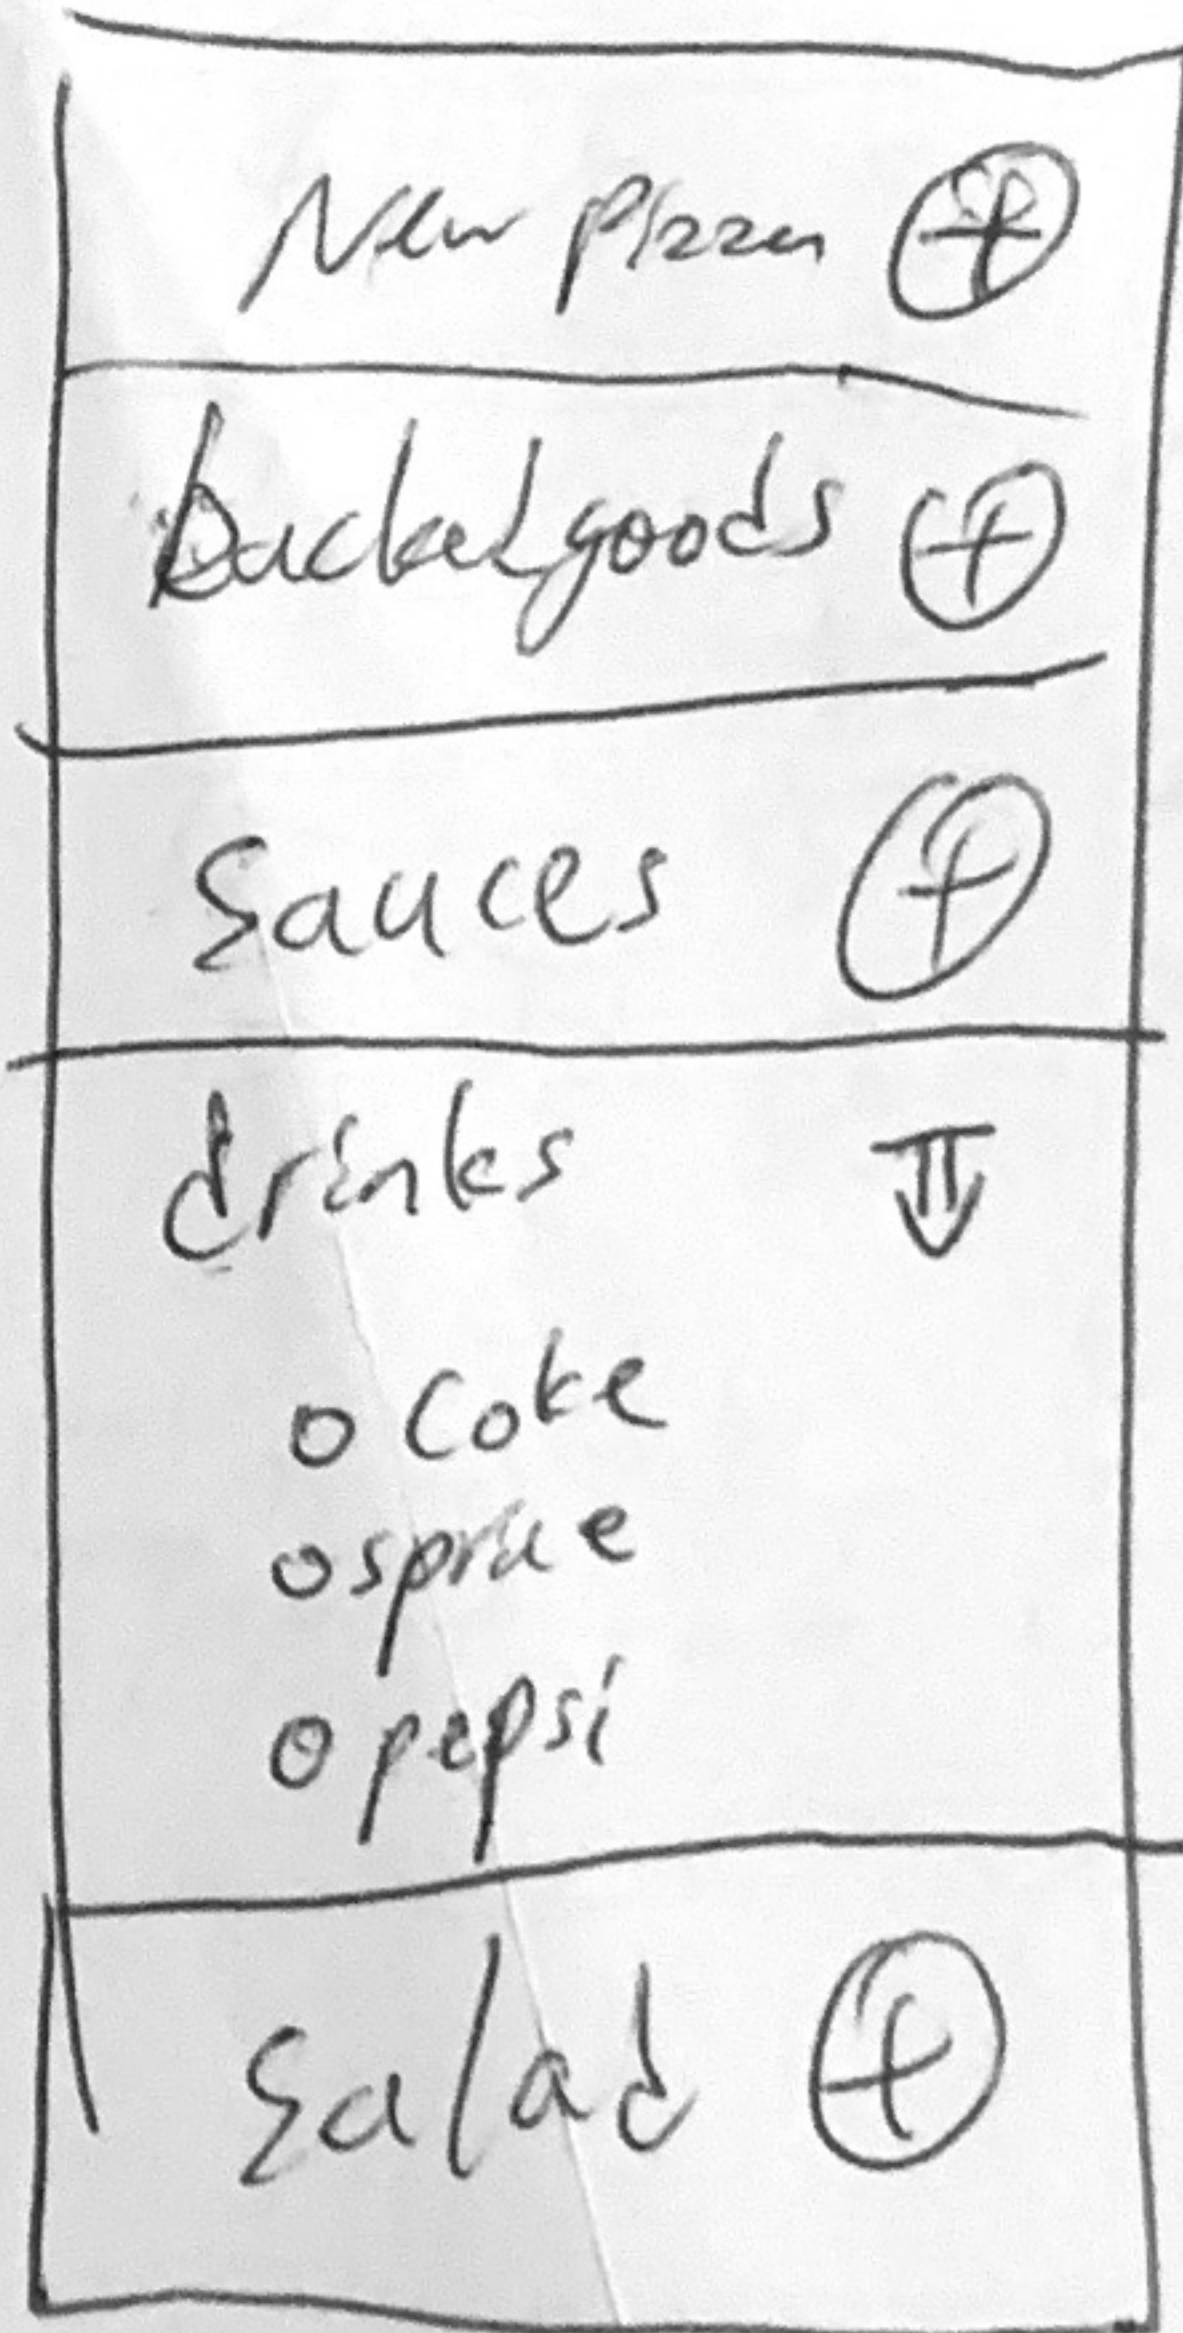 New Pizza
backed goods
Sauces
drinks
Coke
sprite
pepsi
Salad